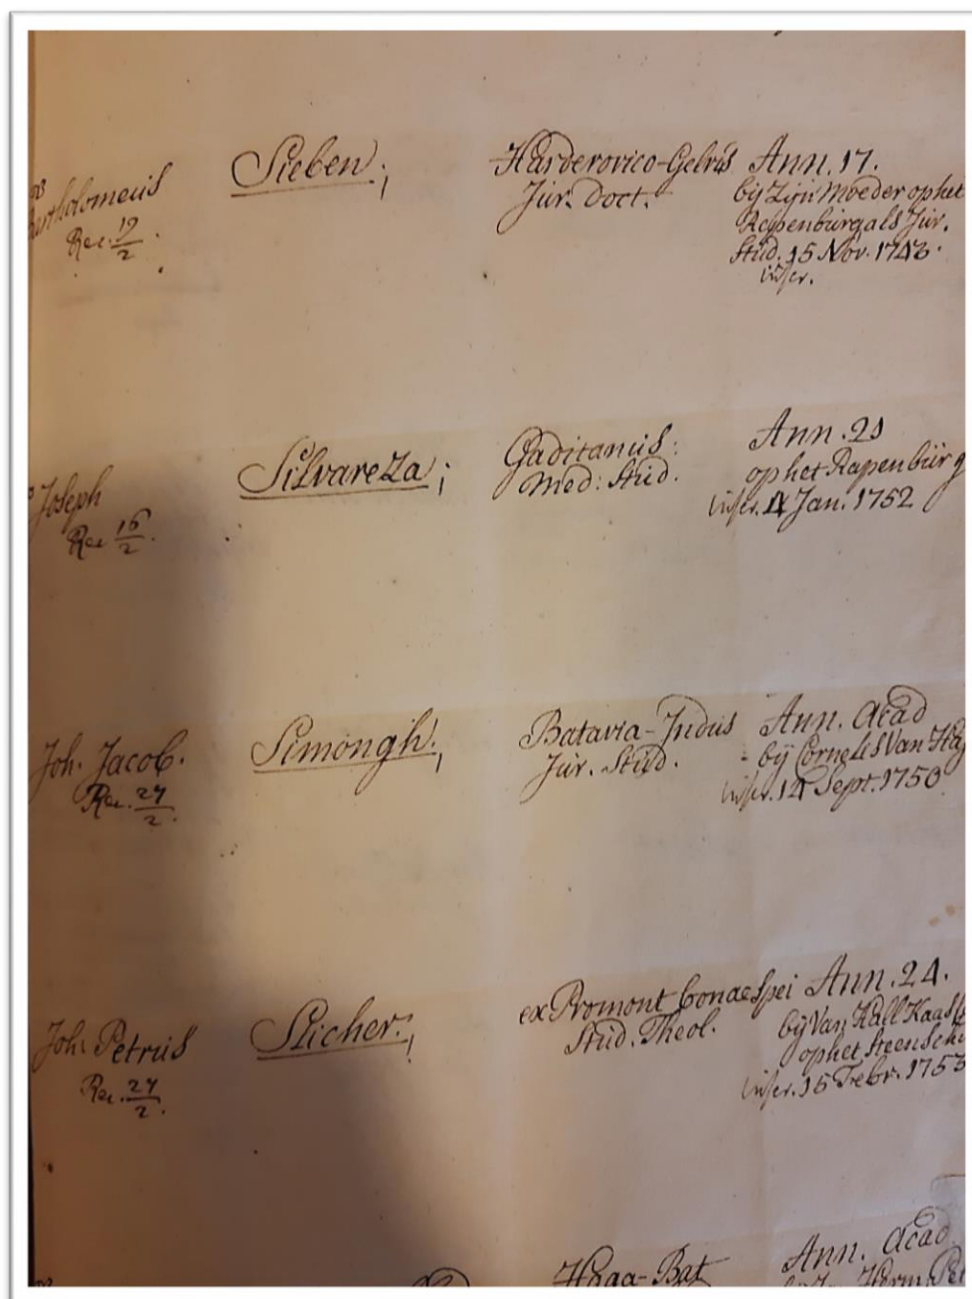 Bartholomeus
Rec. 19/2.
Sieben;
Harderovico-Gelrus
Jur. Doct.
Ann. 17.
bij zijn Moeder op het
Rapenburg als Jur.
Stud. 15 Nov. 1743.
inscr.
Joseph
Rec 16/2.
Silvareza;
Gaditanus.
Med: Stud.
Ann. 21
op het Rapenburg
inscr. 4 Jan. 1752
Joh. Jacob.
Rec. 27/2.
Simongh;
Batavia-Indus
Jur. Stud.
Ann. Acad
bij Cornelis Van
inscr. 14 Sept. 1750
Joh. Petrus
Rec. 27/2.
Slicher;
ex Promont bonae spei
Stud. Theol.
Ann. 24.
bij Van Hall
op het
inscr. 15 Febr. 1753
Haga-Bat
Ann. Acad
Herm